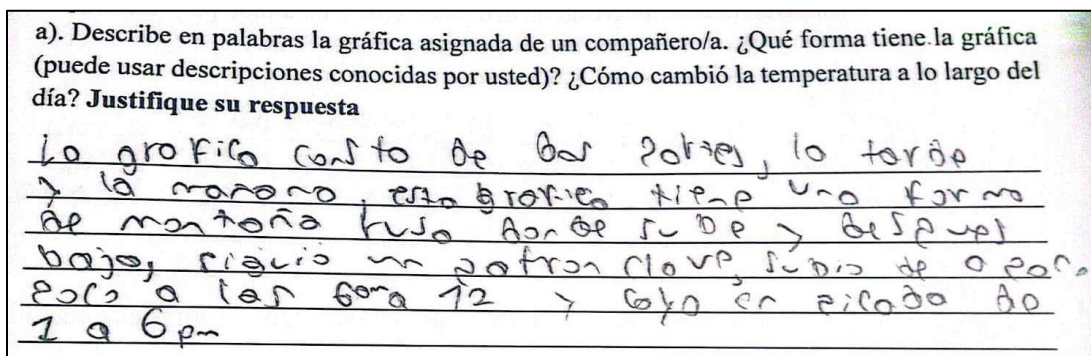 a). Describe en palabras la gráfica asignada de un compañero/a. ¿Qué forma tiene.la gráfica
(puede usar descripciones conocidas por usted)? ¿Cómo cambió la temperatura a lo largo del
día? Justifique su respuesta
La grafica consta de dos partes, la tarde
y la mañana, esta grafica tiene una forma
de montaña rusa donde sube y despues
baja, siguio un patron clave, subio de a poc.
poco a las 6am a 12 y cayo en picada de
1 a 6 pm